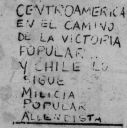 CENTROAMERICA
EN EL CAMINO
DE LA VICTORIA
POPULAR
Y CHILE LO
SIGUE
MILICIA
POPULAR
ALLENDISTA